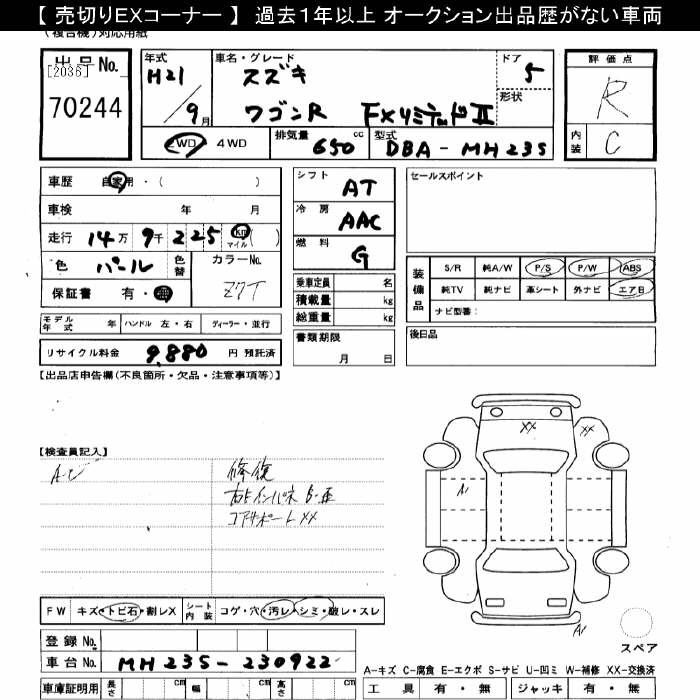 【 売切りEXコーナー 】 過去１年以上 オークション出品歴がない車両
(複合機)対応用紙
出品No.
[2036]
70244
年式 H21 / 9月
車名・グレード スズキ
ワゴンR FXリミテッドⅡ
ドア 5
形状
評価点 R
内装 C
2WD ・ 4WD
排気量 650 cc
型式 DBA - MH23S
車歴 自家用 ・ ( )
車検 年 月
走行 14万 9千 225 km マイル ( )
色 パール 色替
カラーNo. Z7T
保証書 有・無
シフト AT
冷房 AAC
燃料 G
セールスポイント
乗車定員 名
積載量 kg
総重量 kg
装備品
S/R 純A/W P/S P/W ABS
純TV 純ナビ 革シート 外ナビ エアB
ナビ型番：
モデル年式 年 ハンドル 左・右 ディーラー・並行
リサイクル料金 9,880 円 預託済
書類期限 月 日
後日品
【出品店申告欄(不良箇所・欠品・注意事項等)】
【検査員記入】
修復
コアサポートXX
XX
XX
A1
A1
FW キズ・トビ石・割レX
シート内装 コゲ・穴・汚レ・シミ・破レ・スレ
スペア
登録No.
車台No. MH23S-230922
A-キズ C-腐食 E-エクボ S-サビ U-凹ミ W-補修 XX-交換済
車庫証明用 長さ cm 幅 cm 高さ cm
工具 有・無 ジャッキ 有・無